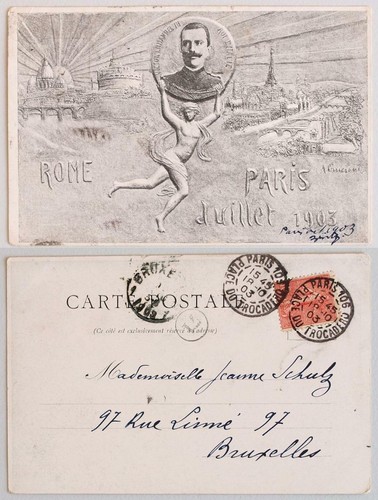 ROME
PARIS
Juillet 1903
Paris 1903
BRUXE
CARTE POSTALE
(Ce côté est exclusivement réservé à l'adresse)
PARIS 106
PLACE DU TROCADERO
15 45
03
PARIS 106
PLACE DU TROCADERO
15 45
03
Mademoiselle Jeanne Schulz
97 Rue Linné 97
Bruxelles